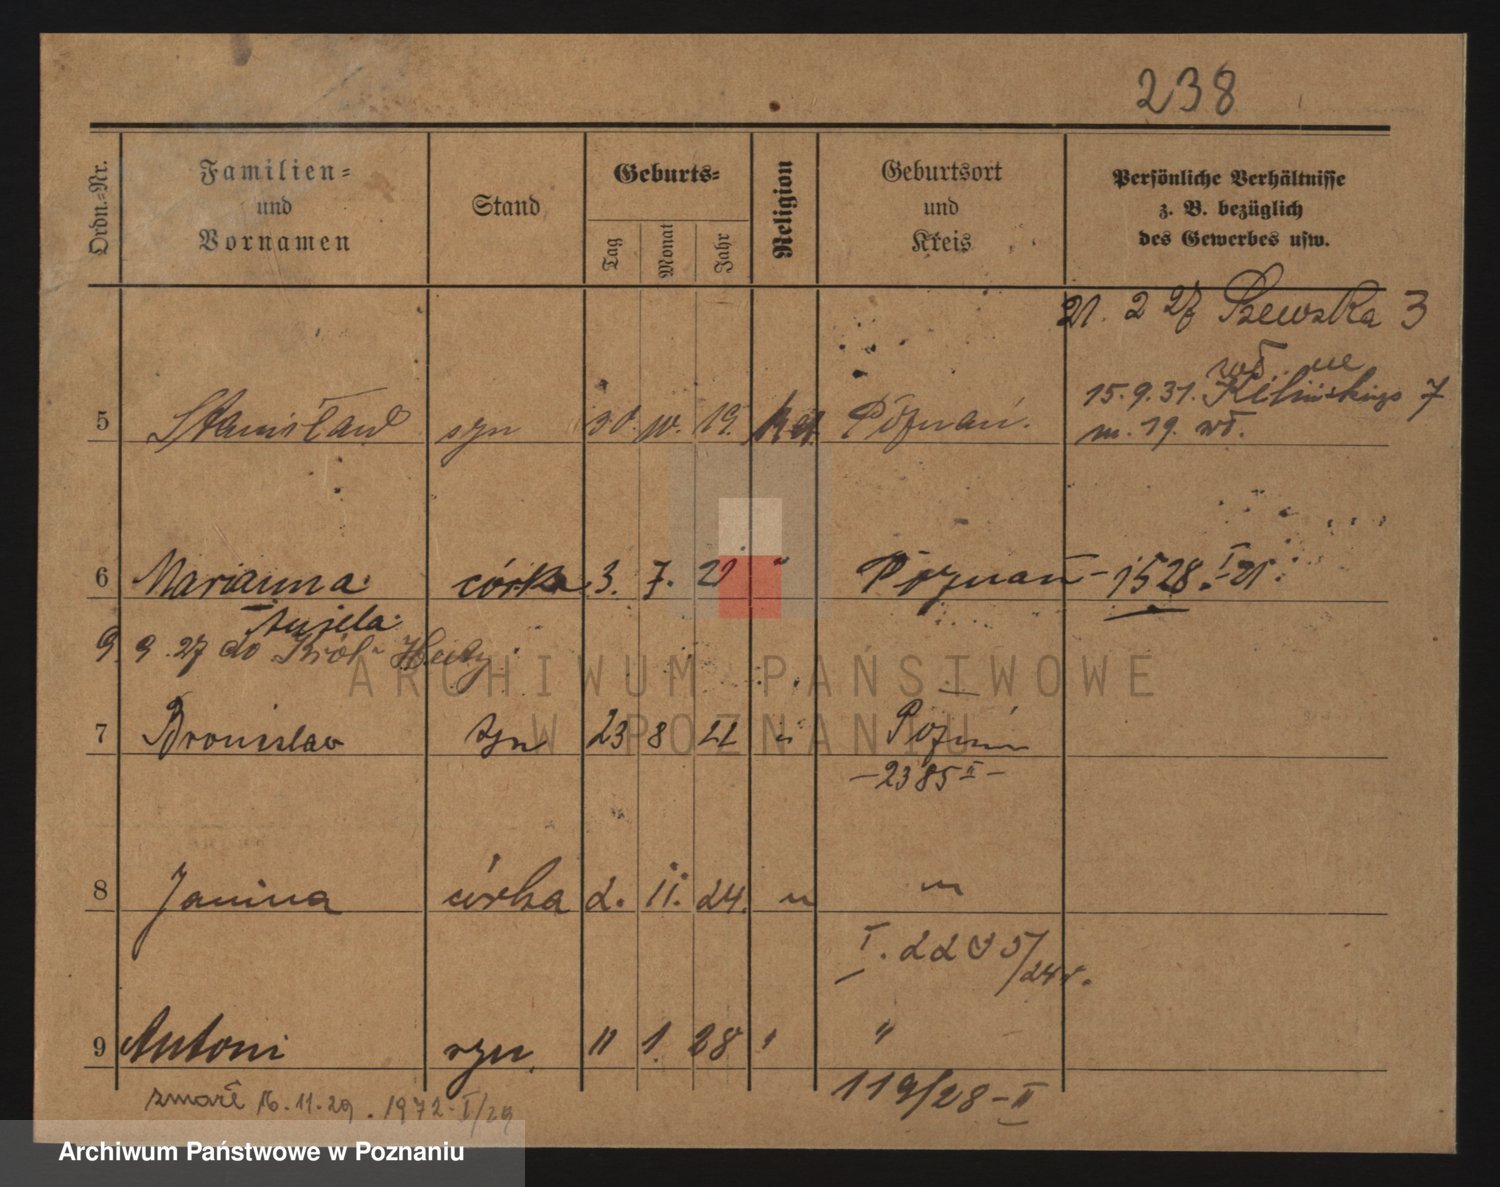 238
Ordn.-Nr.
Familien-
und
Vornamen
Stand
Geburts-
Tag
Monat
Jahr
Religion
Geburtsort
und
Kreis
Persönliche Verhältnisse
z. B. bezüglich
des Gewerbes usw.
21. 2 27 Szewska 3
15.9.31. Kilińskiego 7
m. 19. wł.
5 Stanisław syn 30. 10. 19. kat. Poznań.
6 Marianna córka 3. 7. 21 " Poznań - 1528. I-21.
Aniela
9. 9. 27 do Król. Huty
7 Bronislav syn 23 8 22 " Poznań
- 2385 II -
8 Janina córka 2. 11. 24. " "
I. 2205/24 r.
9 Antoni syn. 11 1 28 " "
119/28 - II
zmarł 16.11.29. 1972-I/29
ARCHIWUM PAŃSTWOWE
W POZNANIU
Archiwum Państwowe w Poznaniu